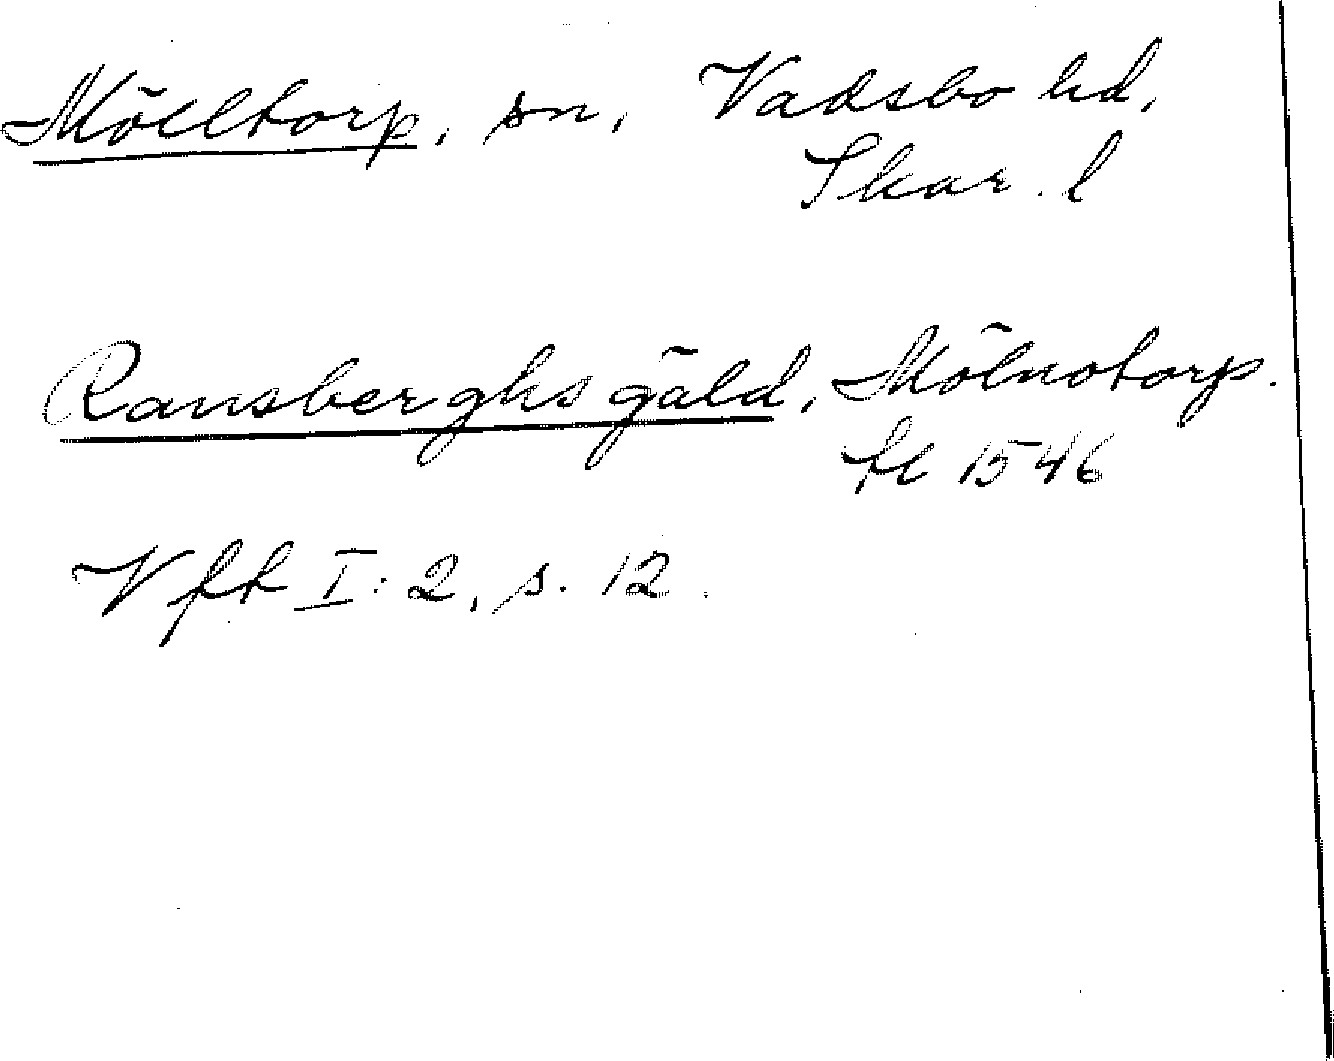 Mölltorp, sn, Vadsbo hd,
Skar. l
Ransberghs gäld, Mölnotorp.
fl 1546
Vfk I:2, s. 12.